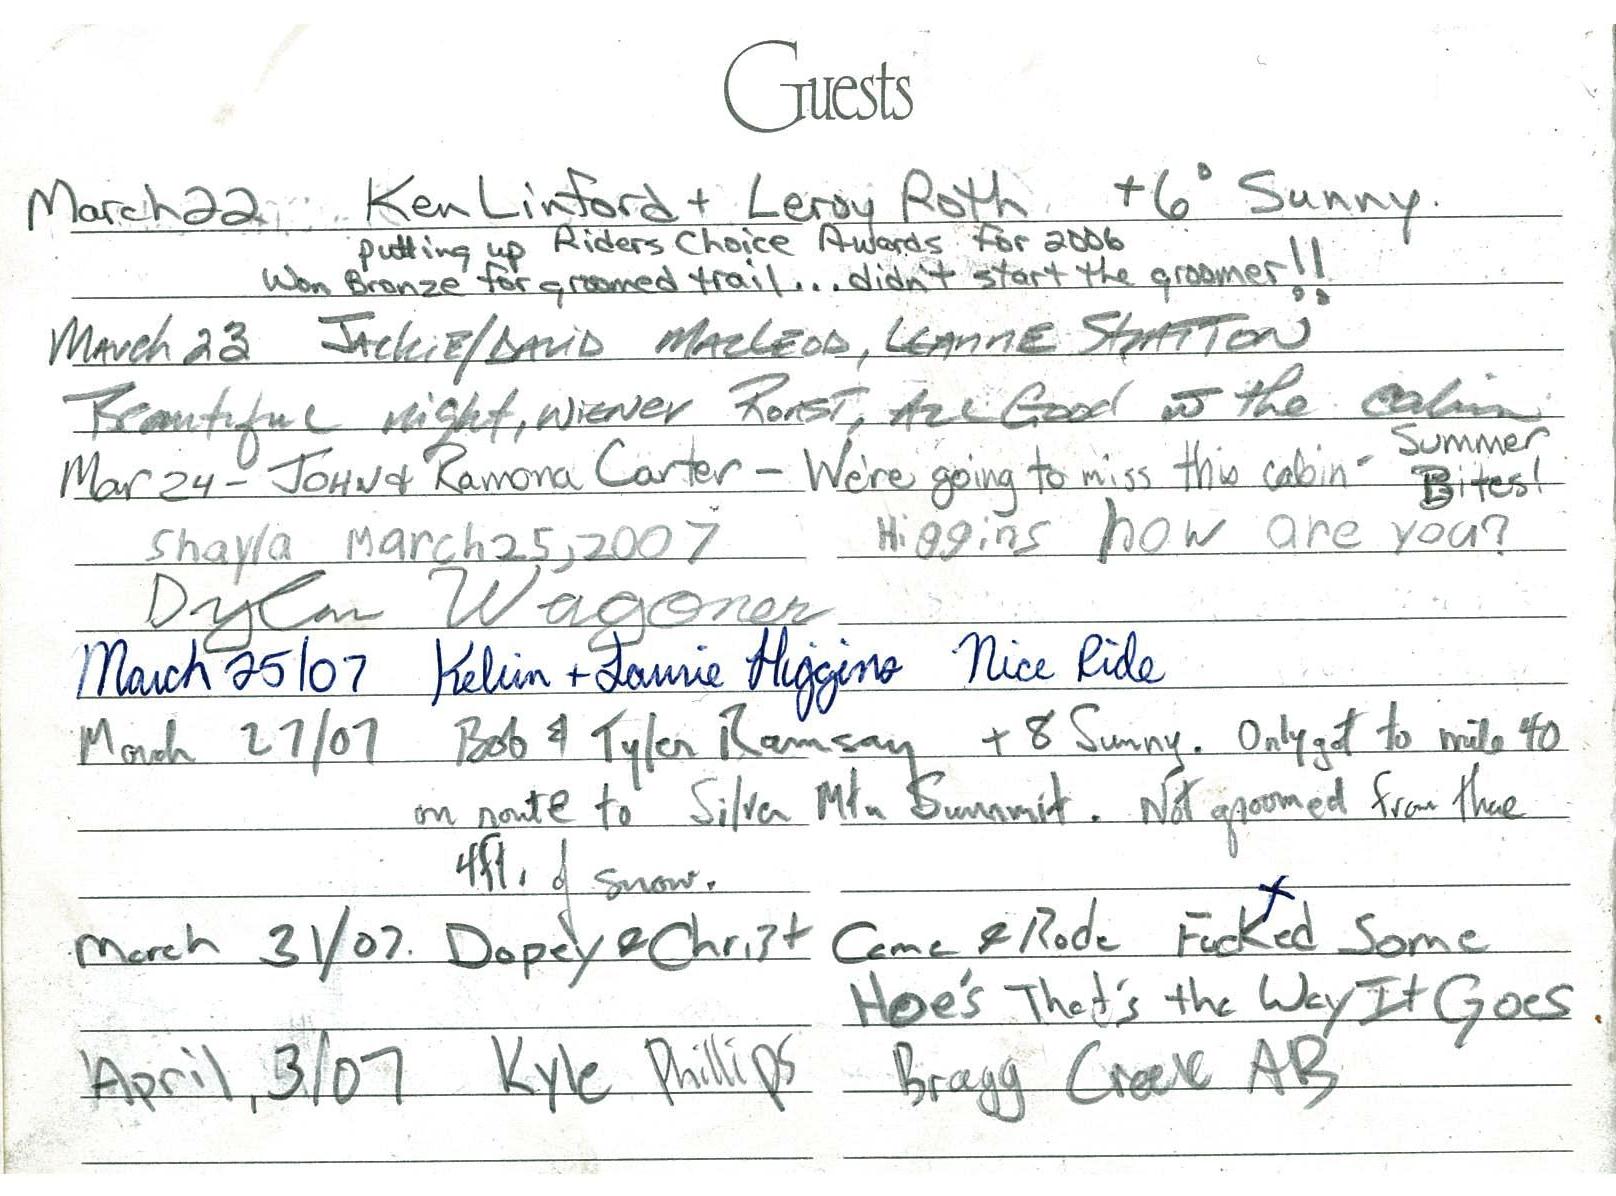 Guests
March 22 Ken Linford + Leroy Roth +6° Sunny.
putting up Riders Choice Awards for 2006
Won Bronze for groomed trail... didn't start the groomer!!
March 23 Jackie/David MacLeod, Leanne Stratton
Beautiful night, wiener Roast, All Good at the cabin
Mar 24 - John & Ramona Carter - We're going to miss this cabin - Summer Bites!
Shayla March 25, 2007 Higgins how are you?
Dylan Wagoner
March 25/07 Kelvin + Laurie Higgins Nice Ride
March 27/07 Bob & Tyler Ramsay + 8 Sunny. Only got to mile 40
on route to Silver Mtn Summit. Not groomed from there
4ft. of snow.
March 31/07. Dopey & Christ Came & Rode Fucked Some
Hoe's That's the Way It Goes
April, 3/07 Kyle Phillips Bragg Creek AB